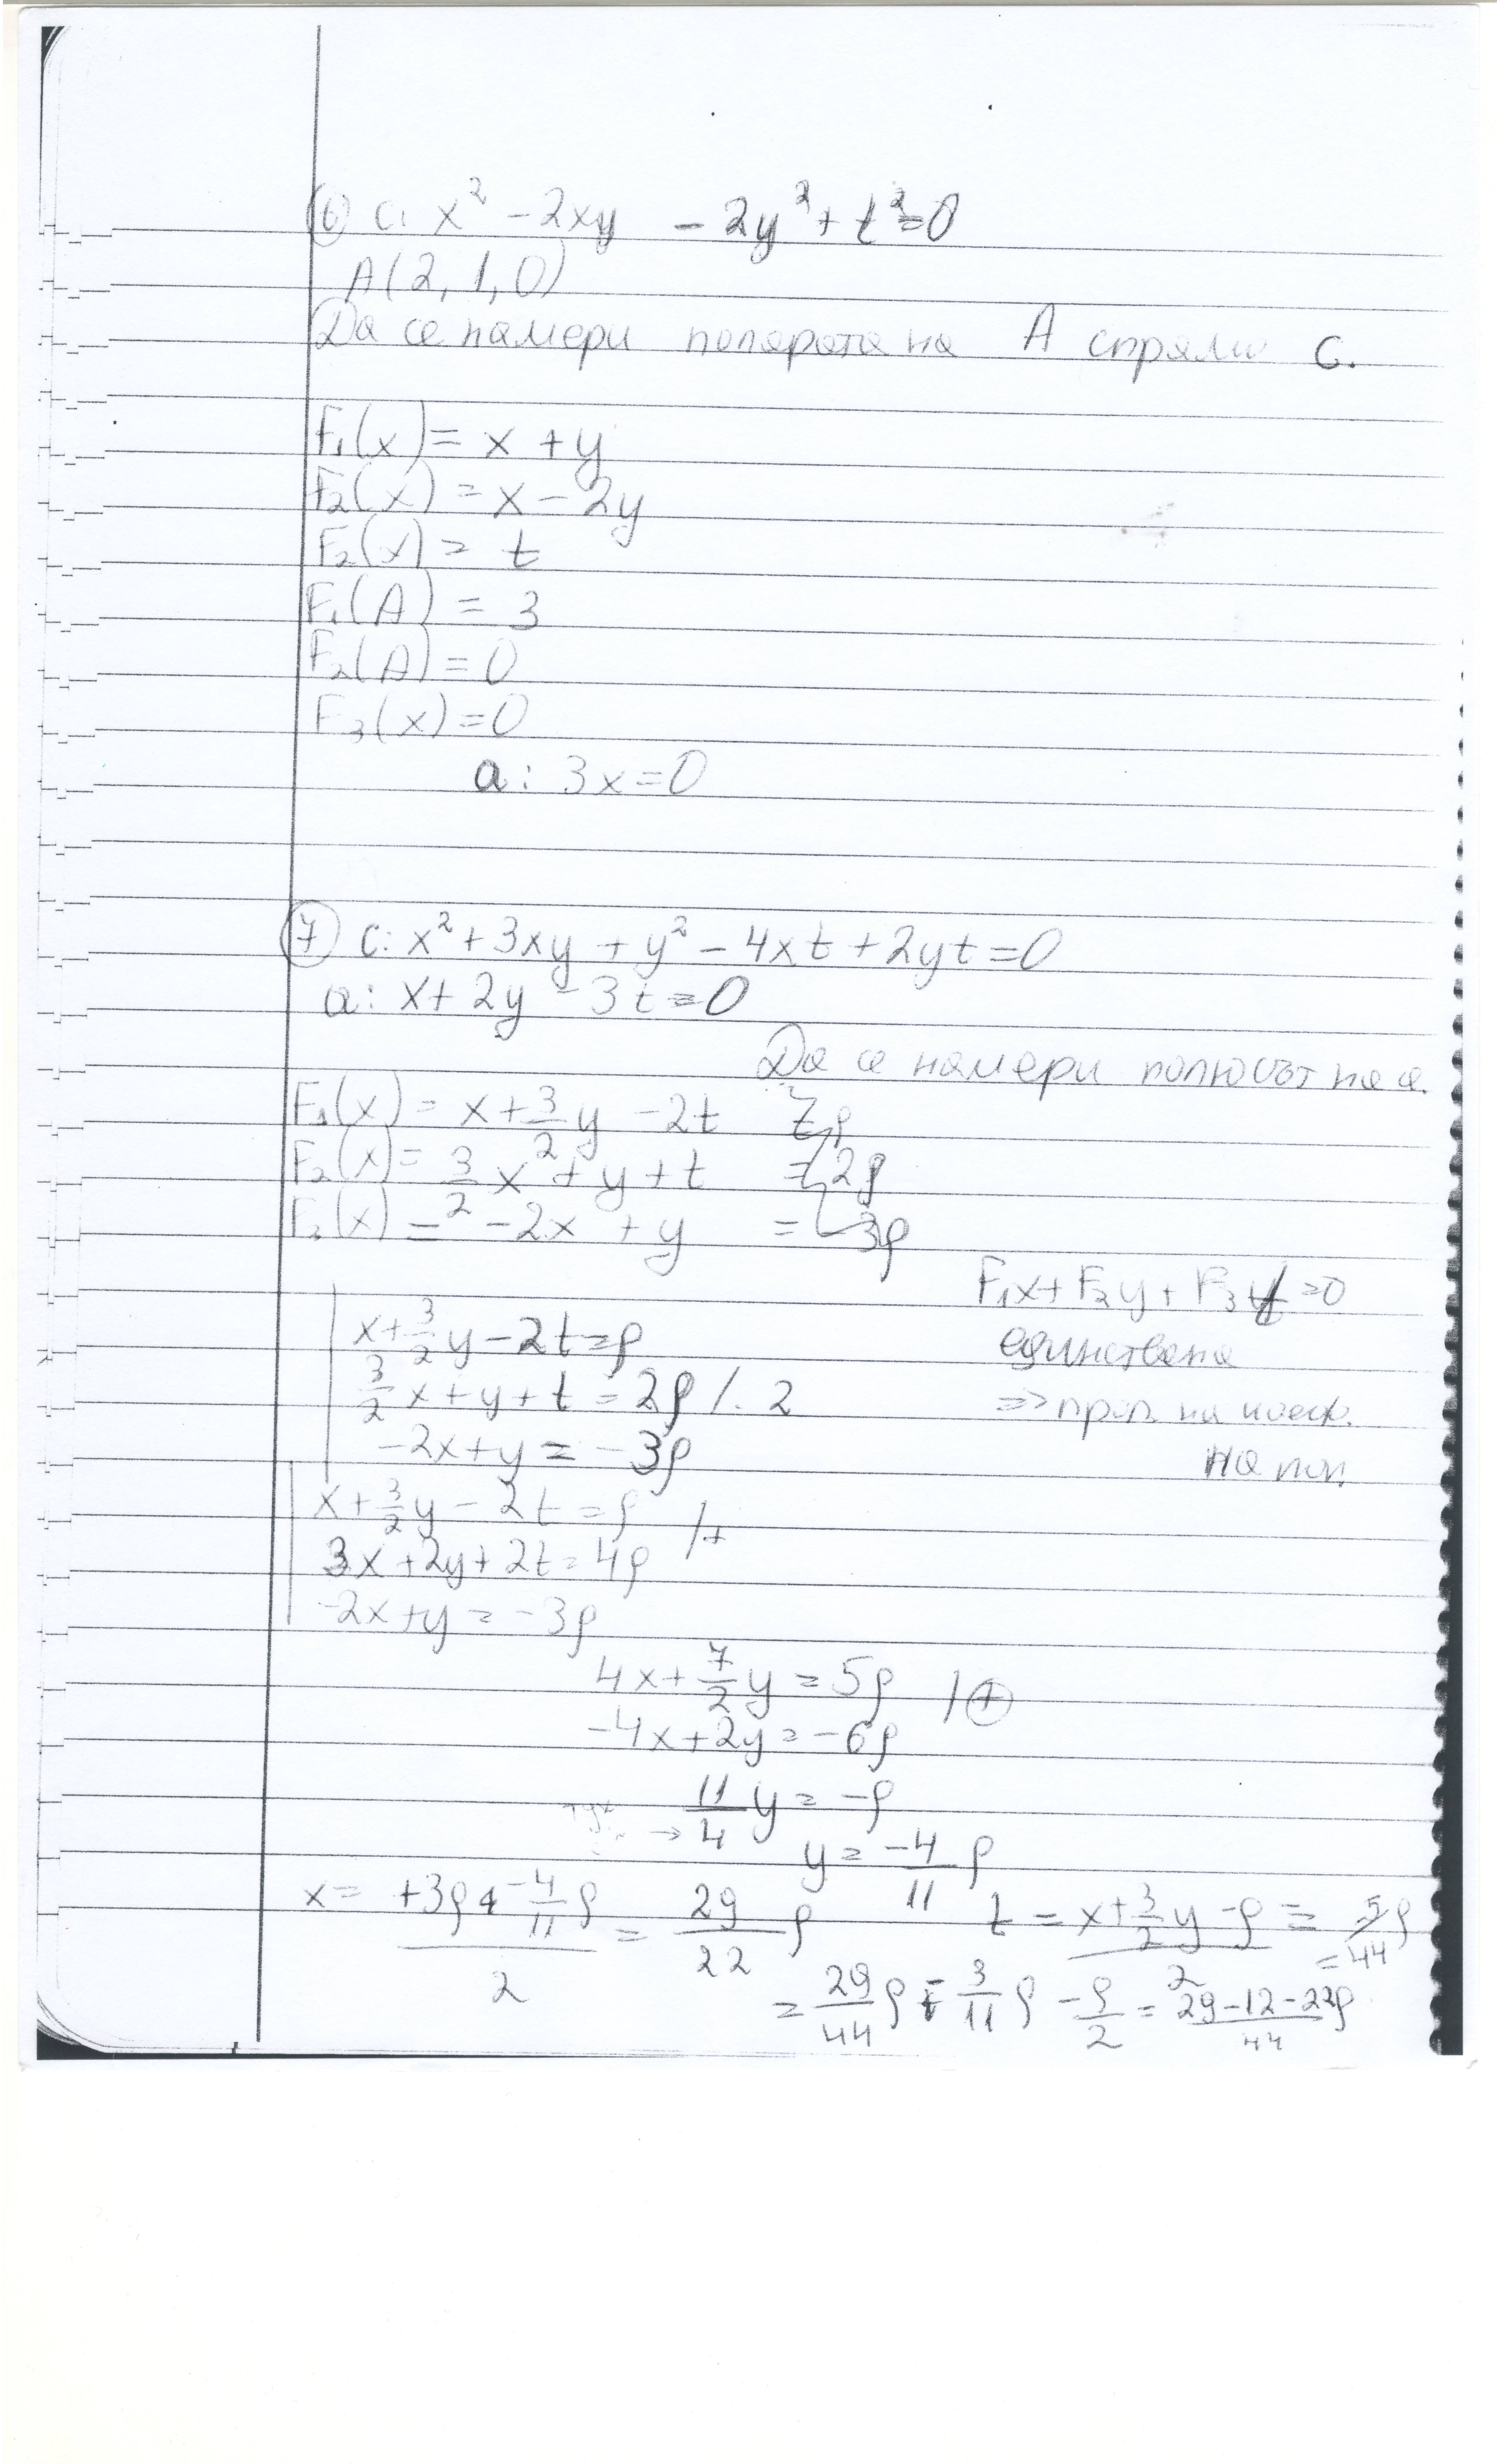 ⑥ C: x² - 2xy - 2y² + t² = 0
A(2, 1, 0)
Да се намери полярата на A спрямо C.
F₁(x) = x + y
F₂(x) = x - 2y
F₂(x) = t
F₁(A) = 3
F₂(A) = 0
F₃(x) = 0
a: 3x = 0
⑦ C: x² + 3xy + y² - 4xt + 2yt = 0
a: x + 2y - 3t = 0
Да се намери полюсът на a.
F₁(x) = x + 3/2 y - 2t = ρ
F₂(x) = 3/2 x + y + t = 2ρ
F₂(x) = -2x + y = -3ρ
F₁x + F₂y + F₃t = 0
единствена
=> проп. на коеф.
на пол.
x + 3/2 y - 2t = ρ
3/2 x + y + t = 2ρ /. 2
-2x + y = -3ρ
x + 3/2 y - 2t = ρ /+
3x + 2y + 2t = 4ρ
-2x + y = -3ρ
4x + 7/2 y = 5ρ /⊕
-4x + 2y = -6ρ
→ 11/4 y = -ρ
y = -4/11 ρ
x = (+3ρ + -4/11 ρ)/2 = 29/22 ρ
t = (x + 3/2 y - ρ)/2 = = -5/44 ρ
= 29/44 ρ - 3/11 ρ - ρ/2 = (29-12-22ρ)/44